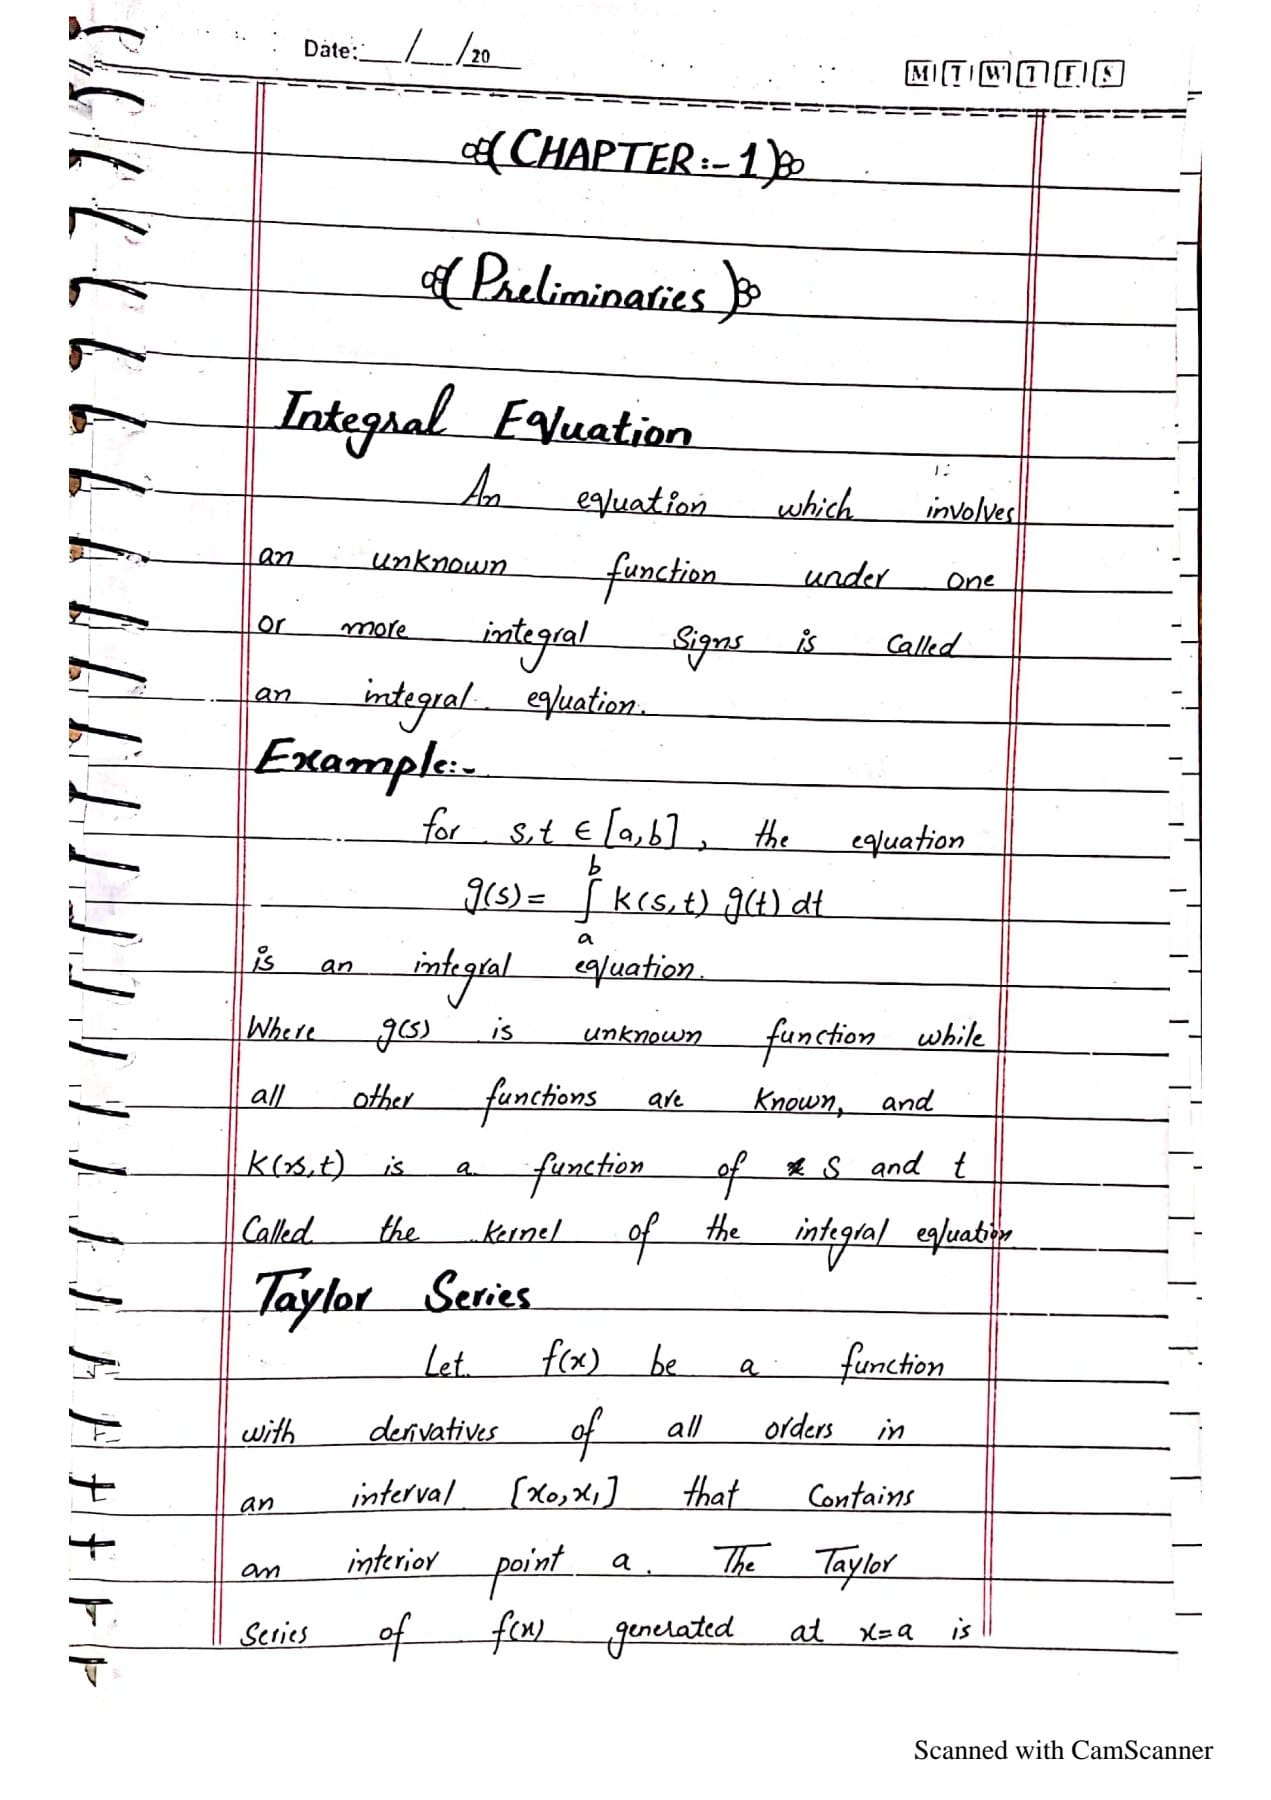 Date: __/__/20__
M T W T F S
(CHAPTER:- 1)
(Preliminaries)
Integral Equation
An equation which involves
an unknown function under one
or more integral Signs is Called
an integral equation.
Example:-
for s,t ∈ [a,b], the equation
g(s) = ∫_a^b K(s,t) g(t) dt
is an integral equation.
Where g(s) is unknown function while
all other functions are Known, and
K(s,t) is a function of s and t
Called the Kernel of the integral equation
Taylor Series
Let f(x) be a function
with derivatives of all orders in
an interval [x₀,x₁] that Contains
an interior point a. The Taylor
Series of f(x) generated at x=a is
Scanned with CamScanner